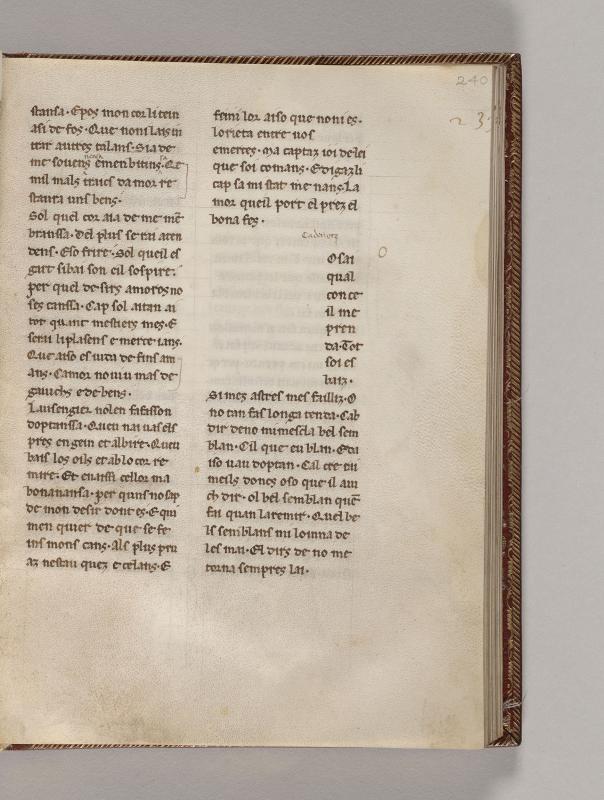 240
23
stansa · E pos mon cor li tein
asi de fos · Que non i lais in
trar autres talans · Si a de
me souens
mil mals traics da mor re
staura uns bens ·
Sol quel cor aia de me mē
branssa · Del plus serai aten
dens · E so frire · Sol queil es
gart sibai son eil sospire ·
per quel desirs amoros no
ses canssa · Cap sol aitan ai
tot quant mestiers mes · E
serai li plasens e merce ians ·
Que aiso es uida de fins am
ans · Camor no uiu mas de
gauchs e de bens ·
Lausengier nolen fafasson
doptanssa · Queu nai uas els
pres engein et albire · Queu
bais los oils et ab lo cor re
mire · Et enaissi cellor ma
bonanansa · per quns no sap
de mon desir dont es · E qui
men quier de que se fe
ins mons cans · Als plus pri
az nestau quez e celans · E
feini lor aiso que non i es ·
lorieta entre uos
emerces · Ma captaz ioi de lei
que soi comans · E digaz li
cap sa mi stat me nans · La
mor queil port el prez el
bona fes ·
Cadenetz
O
O sai
qual
con ce
il me
pren
da · Tot
soi es
baiz ·
Si mez astres mes failliz · O
no tan fas longa tenda · Cab
dir de no mi mescla bel sem
blan · Cil que eu blan · E da
iso uau doptan · Cal cre eu
meils dones oso que il au
ch dir · ol bel semblan quē
fai quan la remir · Quel be
ls semblans mi loinna de
les mai · El dirs de no me
torna sempres lai ·